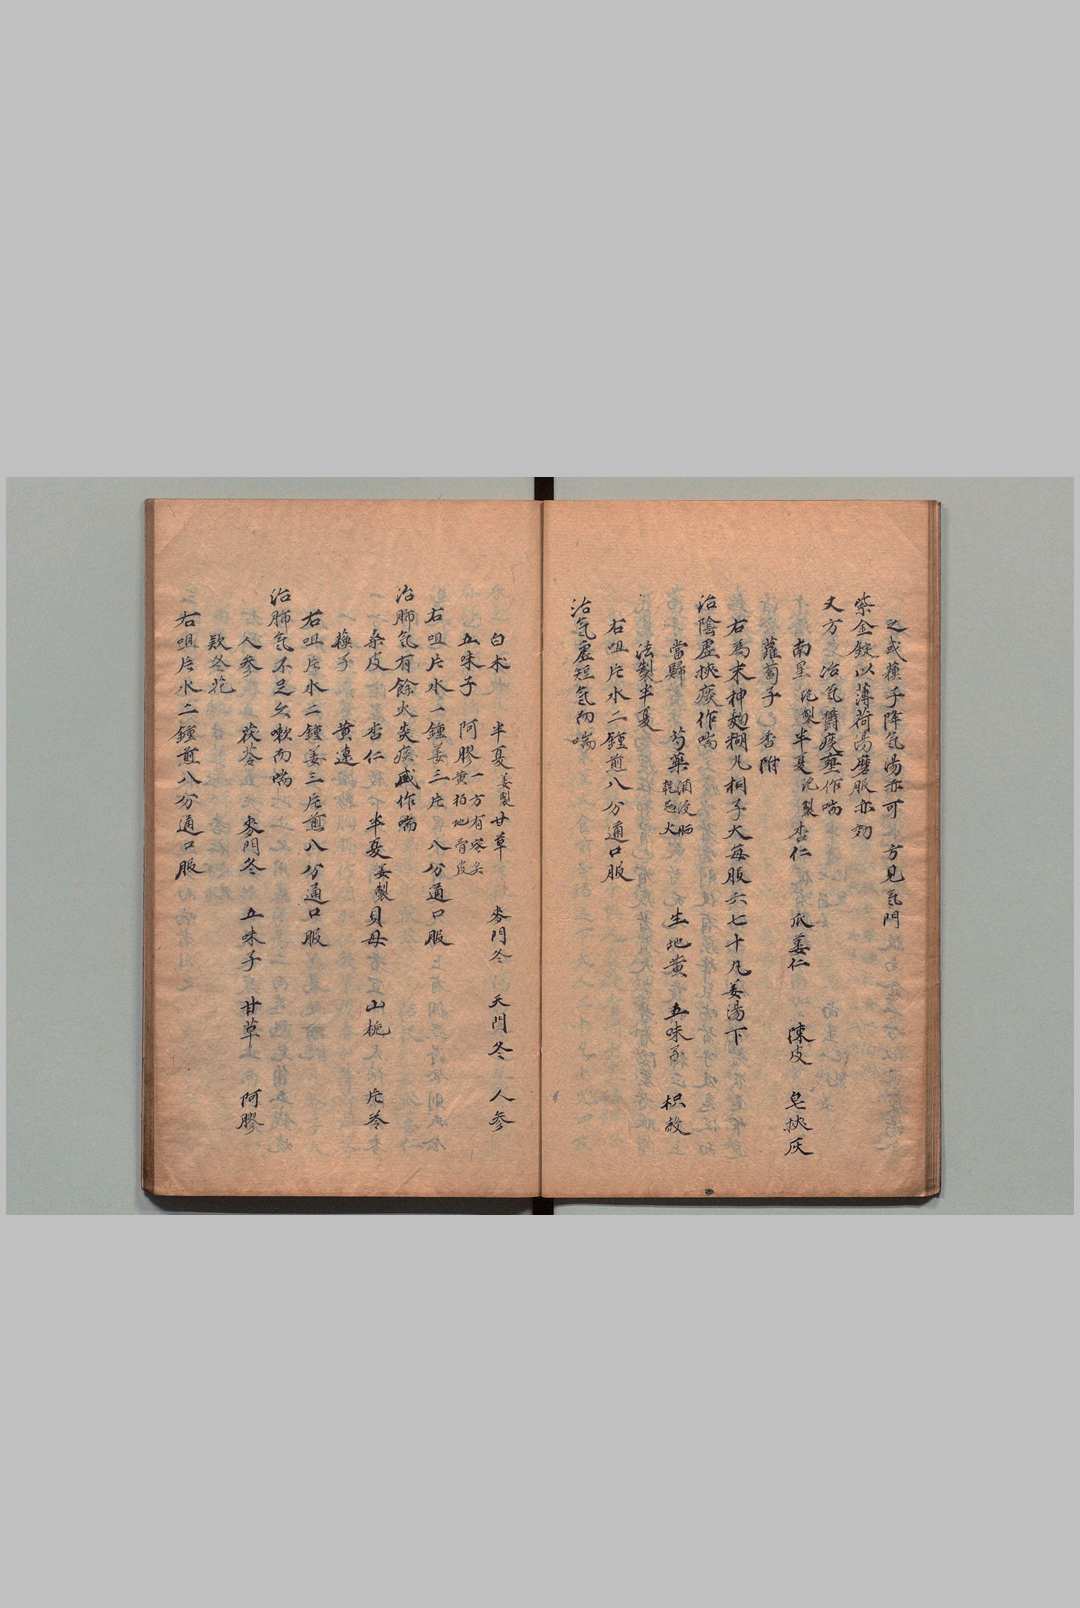 之或蘓子降气湯亦可　方見气門
紫金錠以薄荷湯磨服亦効
又方　治气欝痰壅作喘
南星泡製半夏泡製杏仁　瓜蔞仁　陳皮　皂挾灰
蘿蔔子　香附
右為末神麯糊丸桐子大每服六七十丸姜湯下
治陰虛挾痰作喘
當歸　芍藥酒浸晒乾　生地黄　五味子　枳殻
法製半夏
右咀片水二鍾煎八分通口服
治气虛短气而喘
白术　半夏姜製甘草　麥門冬　天門冬　人參
五味子　阿膠一方有地骨皮
右咀片水一鍾姜三片煎八分通口服
治肺气有餘火炎痰盛作喘
桑皮　杏仁　半夏姜製貝母　山梔　片芩
蘓子　黄連
右咀片水二鍾姜三片煎八分通口服
治肺气不足久嗽而喘
人參　茯苓　麥門冬　五味子　甘草　阿膠
款冬花
右咀片水二鍾煎八分通口服